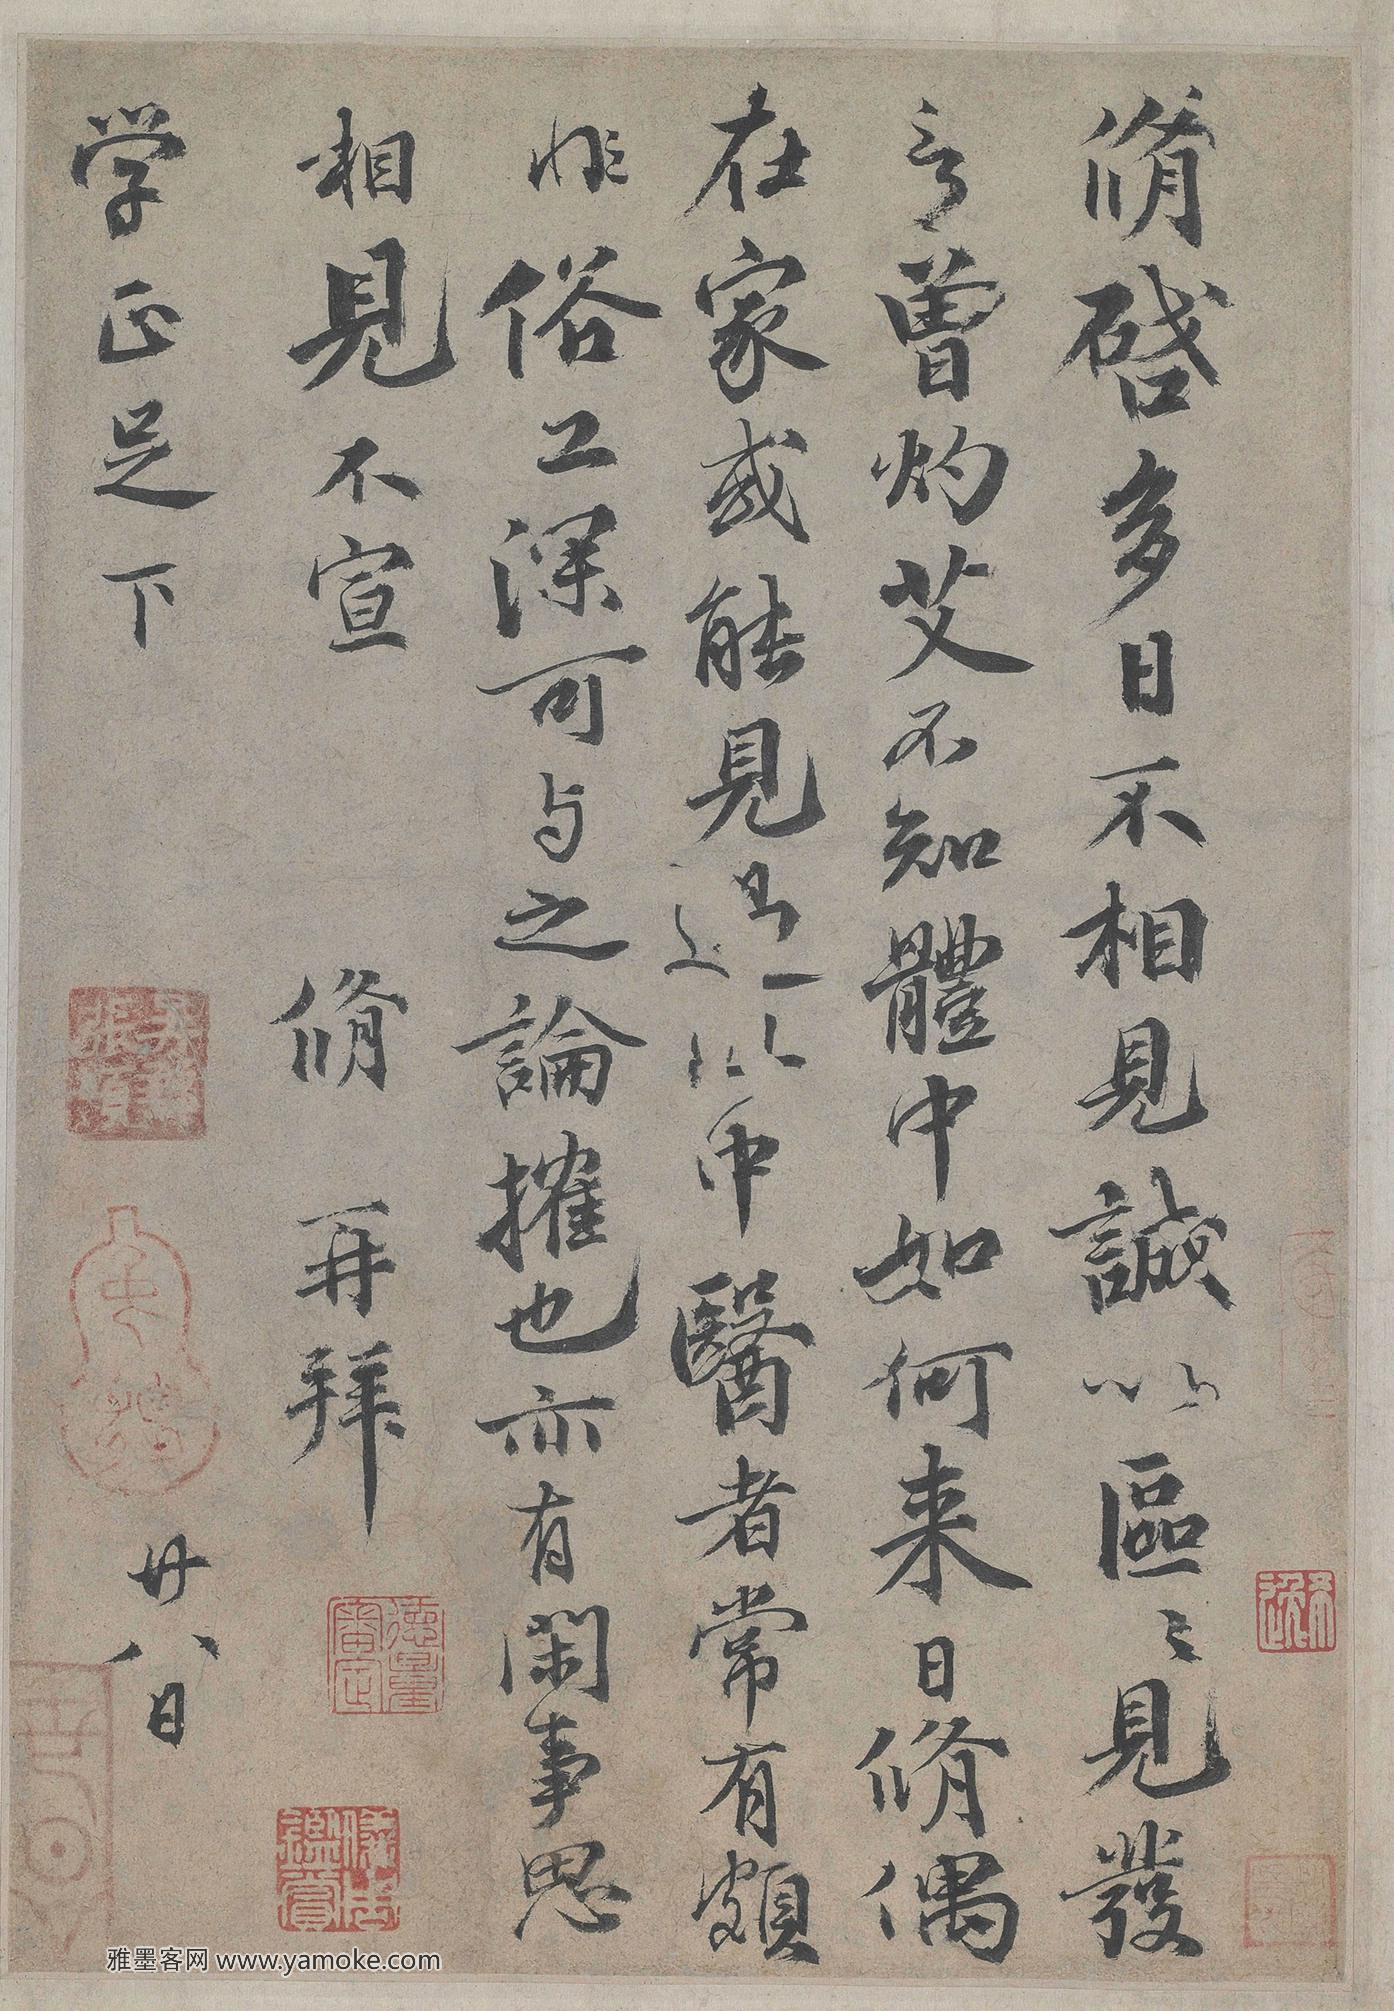 脩啓多日不相見誠以區〻見發
言曾灼艾不知體中如何来日脩偶
在家或能見過此中醫者常有頗
非俗工深可与之論搉也亦有閑事思
相見不宣　脩　再拜
学正足下　廿八日
德量審定
鑑賞
雅墨客网 www.yamoke.com